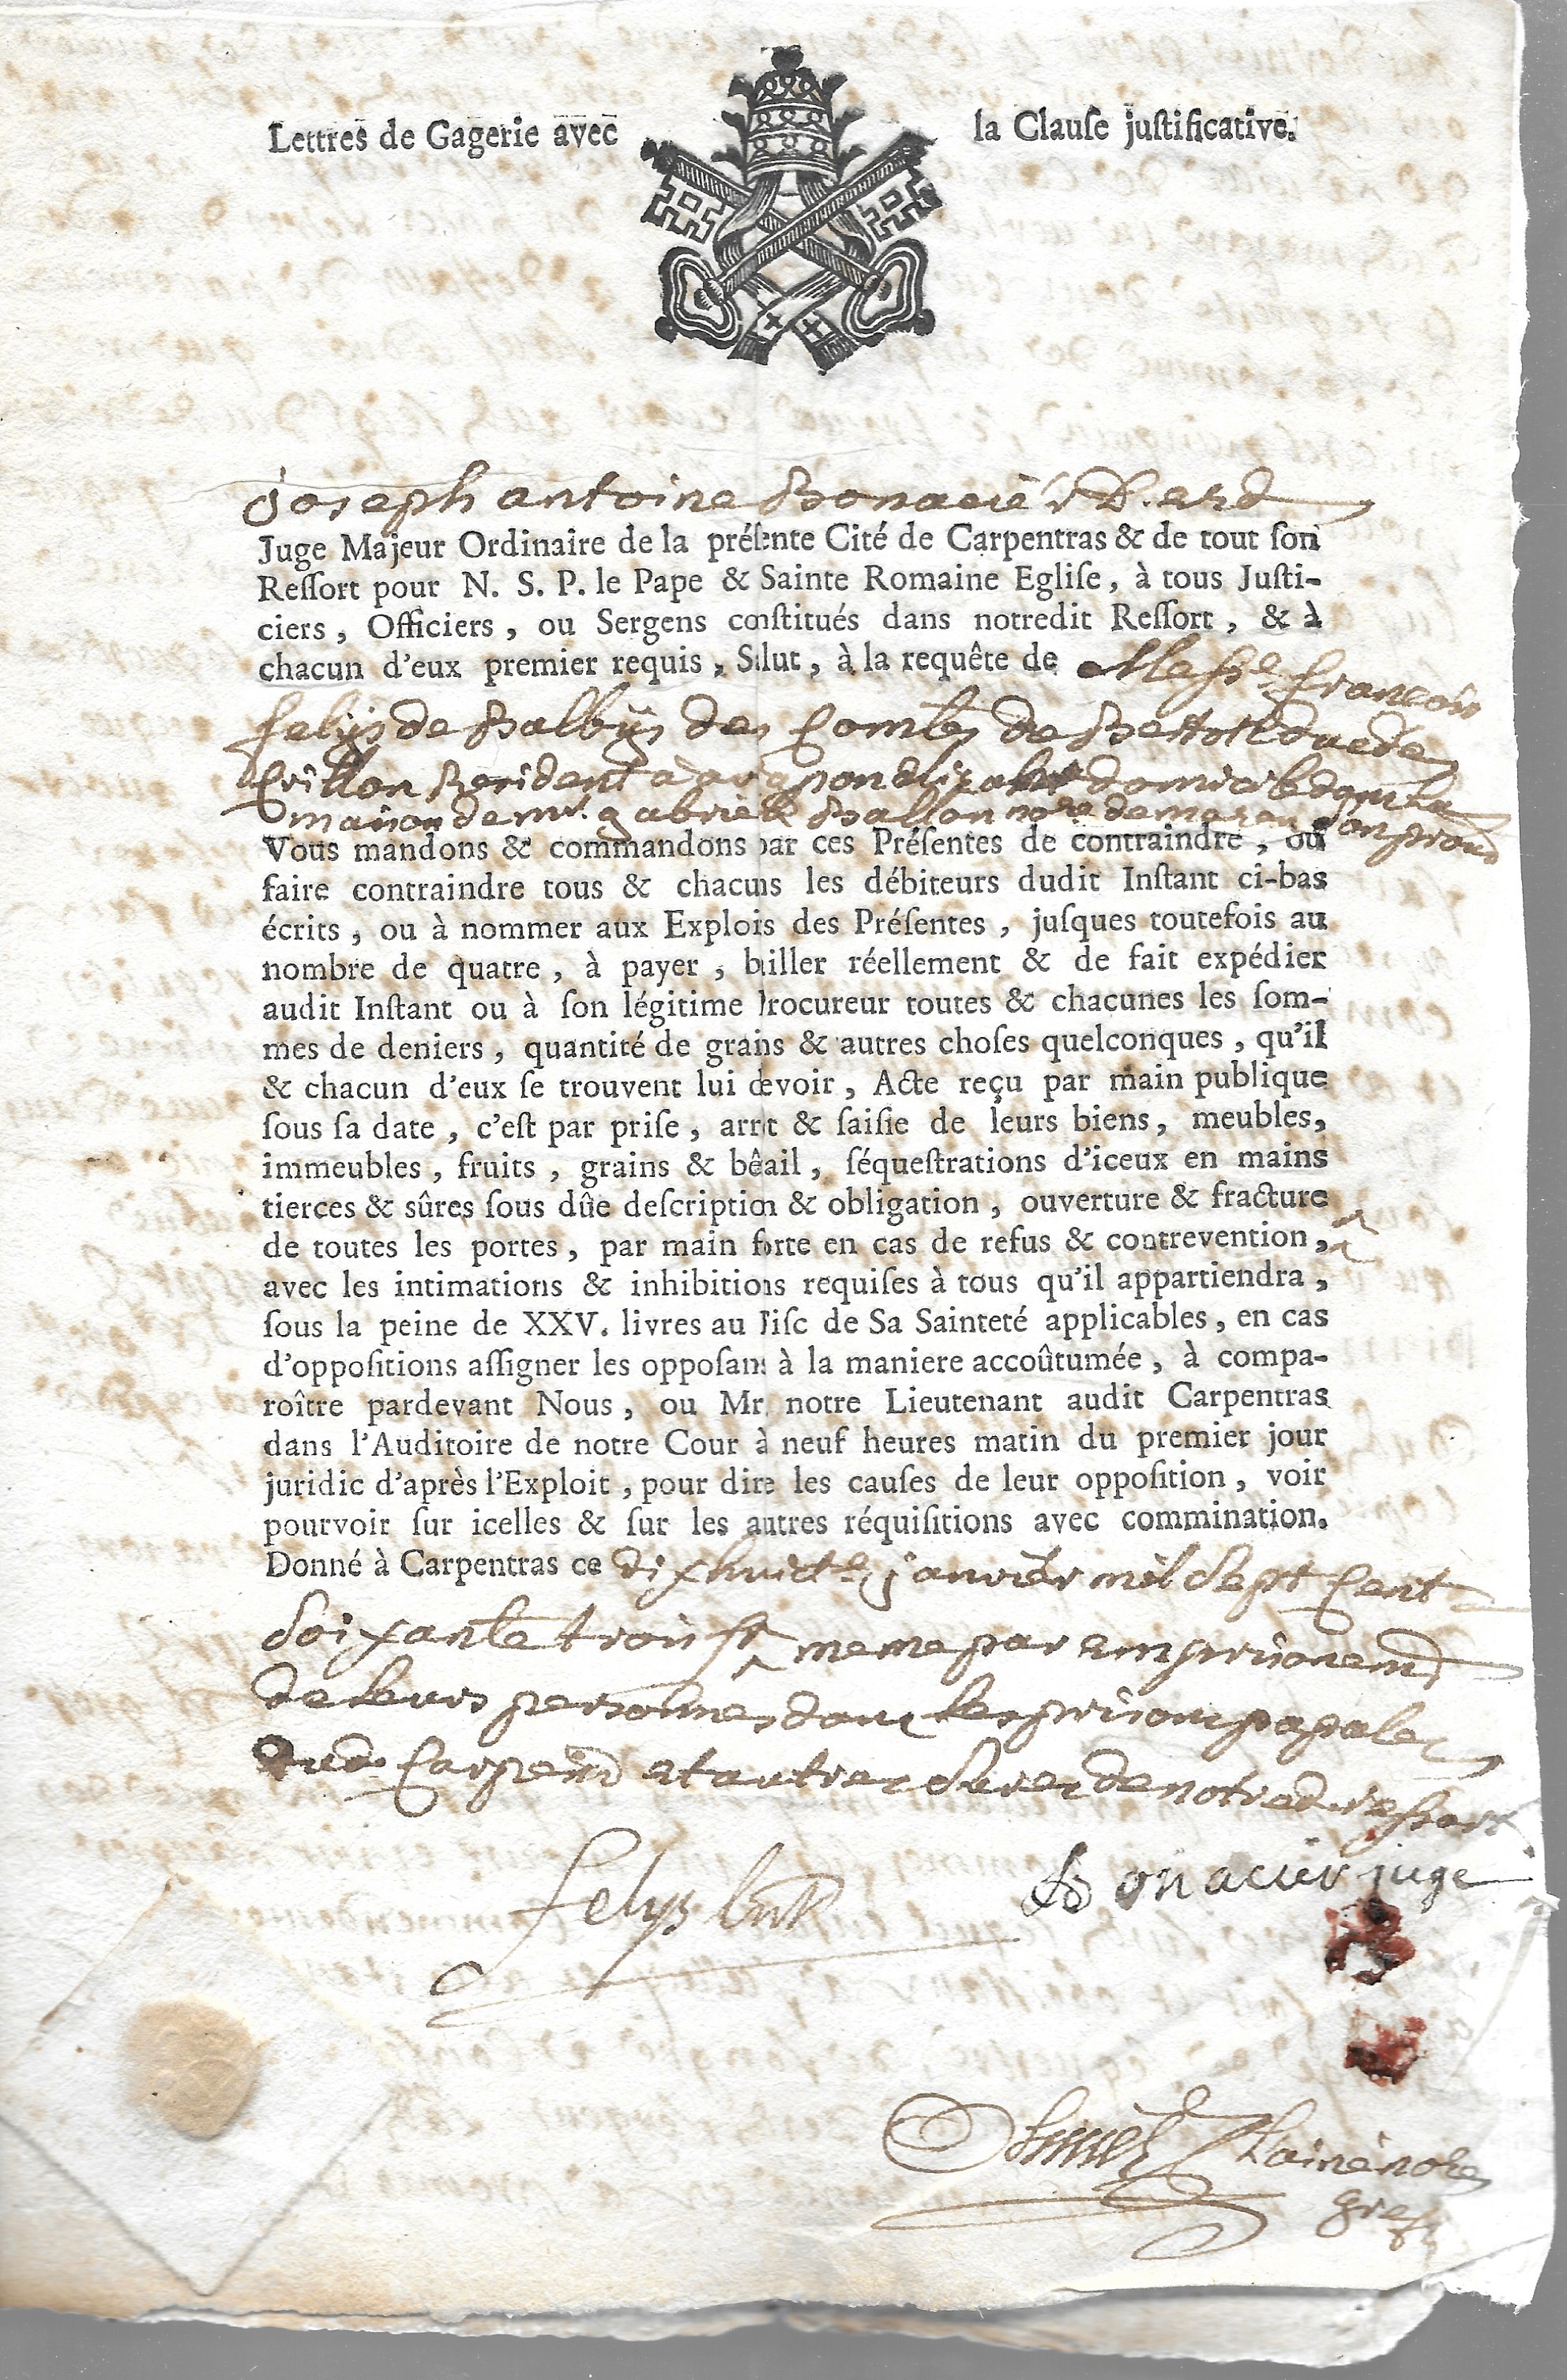 Lettres de Gagerie avec la Clauſe juſtificative.
Joseph antoine Bonacier
Juge Majeur Ordinaire de la préſente Cité de Carpentras & de tout ſon
Reſſort pour N. S. P. le Pape & Sainte Romaine Egliſe, à tous Juſti-
ciers, Officiers, ou Sergens conſtitués dans notredit Reſſort, & à
chacun d'eux premier requis, Salut, à la requête de Messe. francois
felix de Balbis des Comtes de Berton duc de
Crillon Resident à domicile dans la
maison de mr. gabriel Ballon nore. de mazan son
Vous mandons & commandons par ces Préſentes de contraindre, ou
faire contraindre tous & chacuns les débiteurs dudit Inſtant ci-bas
écrits, ou à nommer aux Explois des Préſentes, juſques toutefois au
nombre de quatre, à payer, bailler réellement & de fait expédier
audit Inſtant ou à ſon légitime Procureur toutes & chacunes les ſom-
mes de deniers, quantité de grains & autres choſes quelconques, qu'il
& chacun d'eux ſe trouvent lui devoir, Acte reçu par main publique
ſous ſa date, c'eſt par priſe, arrêt & ſaiſie de leurs biens, meubles,
immeubles, fruits, grains & bêtail, ſéqueſtrations d'iceux en mains
tierces & sûres ſous dûe deſcription & obligation, ouverture & fracture
de toutes les portes, par main forte en cas de refus & contrevention,
avec les intimations & inhibitions requiſes à tous qu'il appartiendra,
ſous la peine de XXV. livres au Fiſc de Sa Sainteté applicables, en cas
d'oppoſitions aſſigner les oppoſans à la maniere accoûtumée, à compa-
roître pardevant Nous, ou Mr. notre Lieutenant audit Carpentras
dans l'Auditoire de notre Cour à neuf heures matin du premier jour
juridic d'après l'Exploit, pour dire les cauſes de leur oppoſition, voir
pourvoir ſur icelles & ſur les autres réquiſitions avec commination.
Donné à Carpentras ce dixhuicte. janvier mil Sept Cent
Soixante trois meme par emprisonemt
de leurs personnes dans les prisons papales
dud. Carpens et autres de notred. ressort
felix
Bonacier juge
L'ainé nore.
greff.